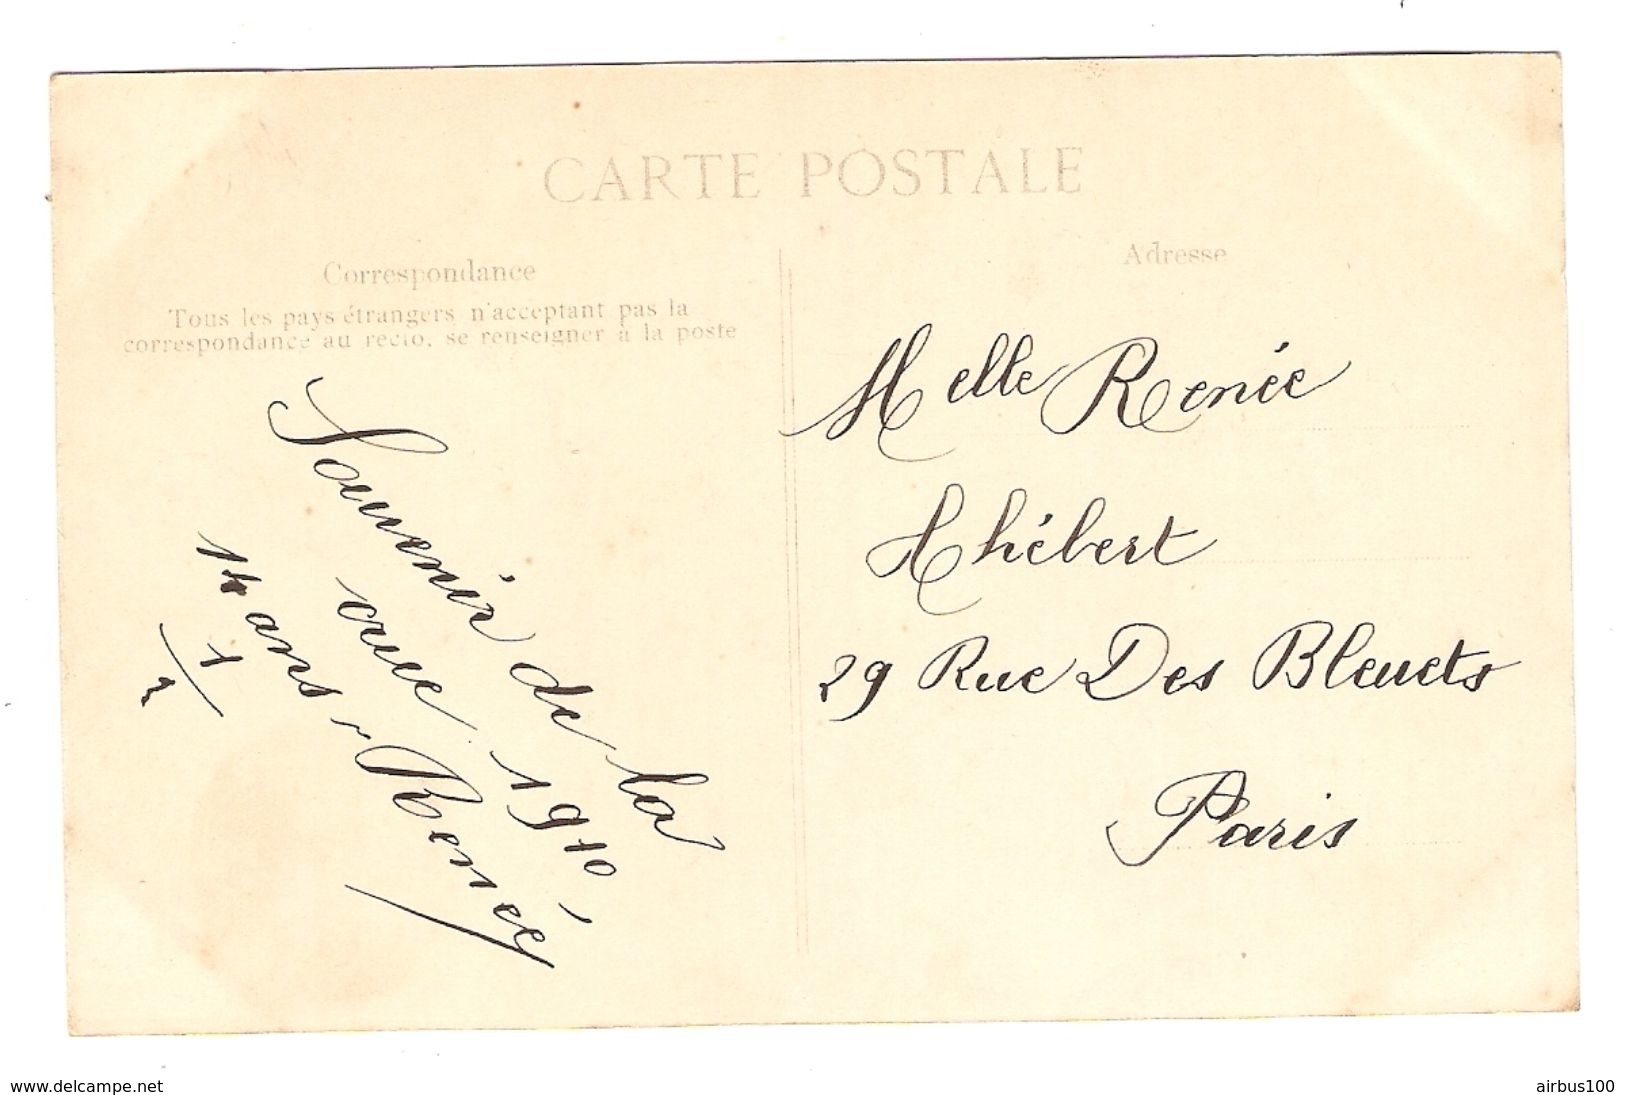 CARTE POSTALE
Correspondance
Tous les pays étrangers n'acceptant pas la
correspondance au recto, se renseigner à la poste
Souvenir de la
crue 1910,
14 ans 1/2 Renée
Adresse
Melle Renée
Hhébert
29 Rue Des Bleuets
Paris
www.delcampe.net
airbus100